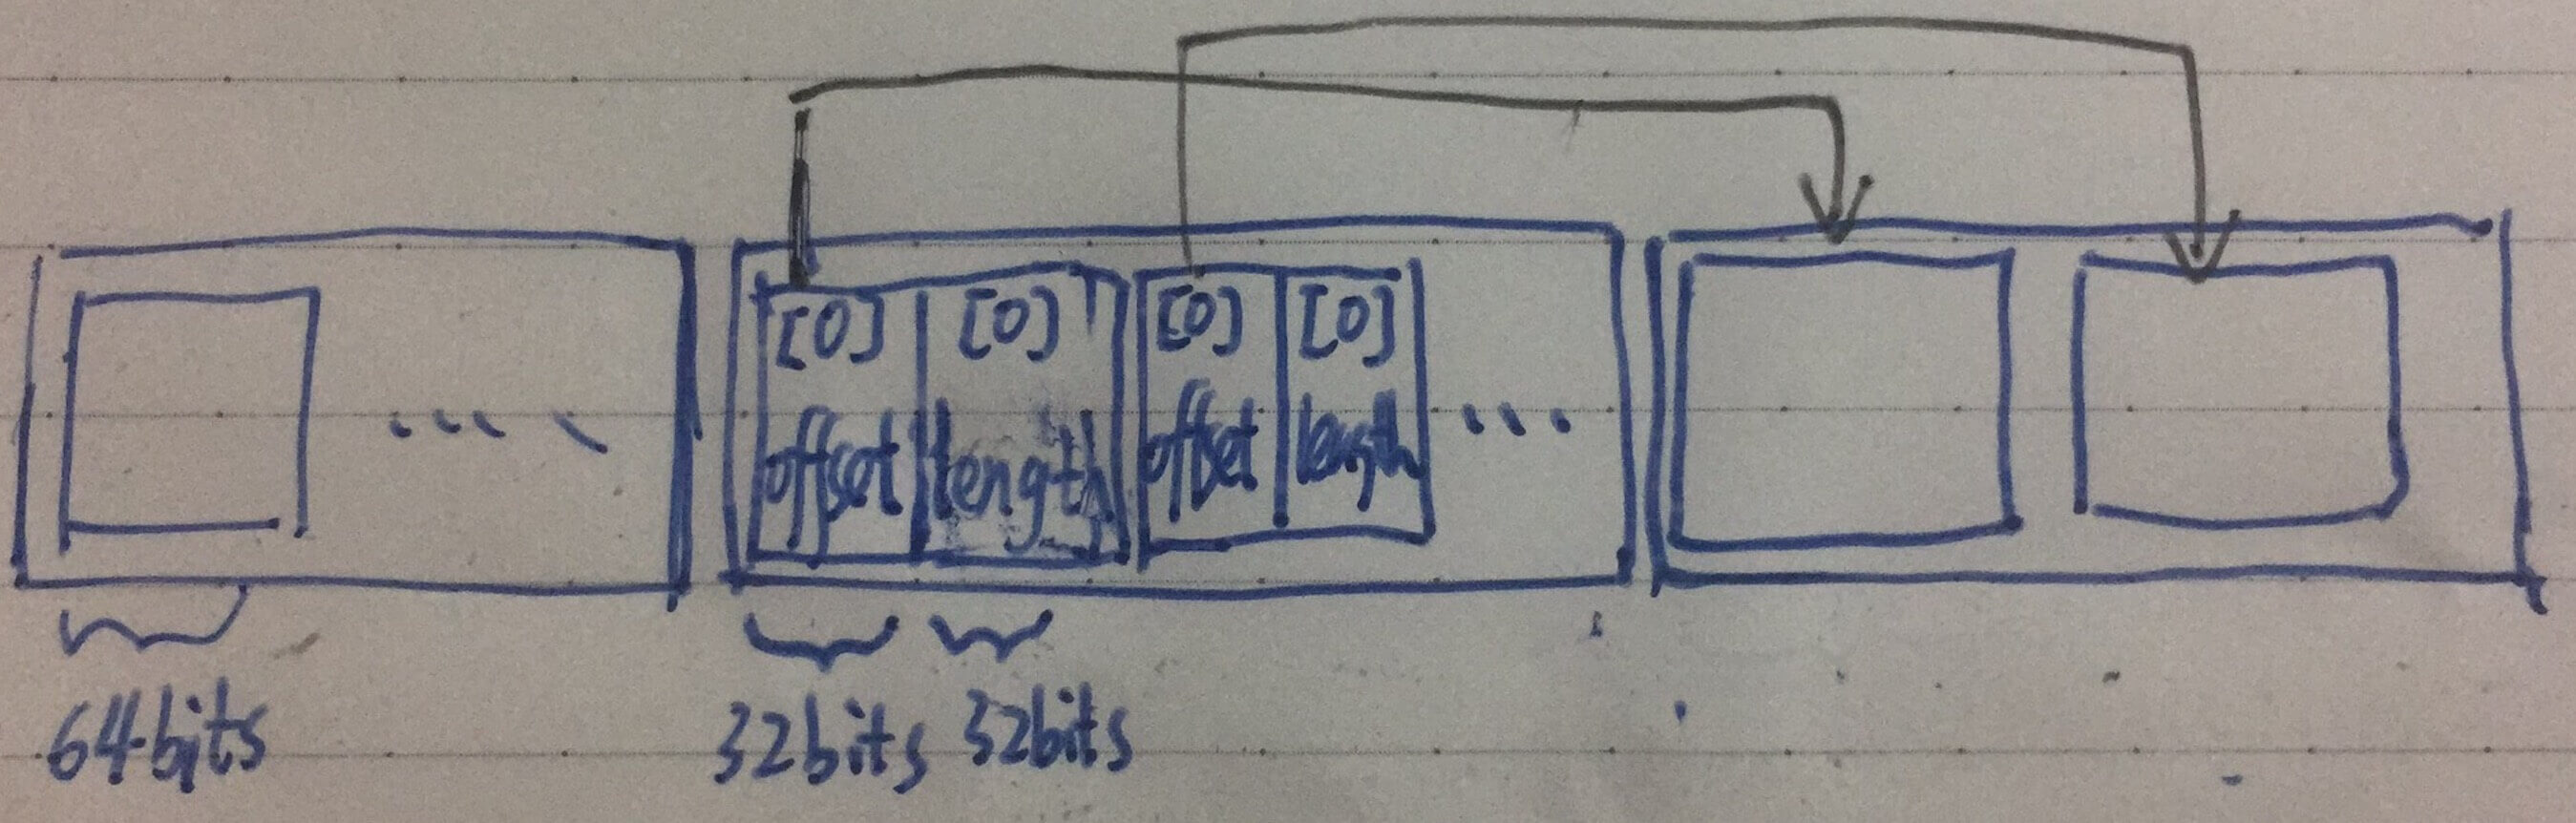 [0] [0] [0] [0]
offset length offset length
64bits 32bits 32bits